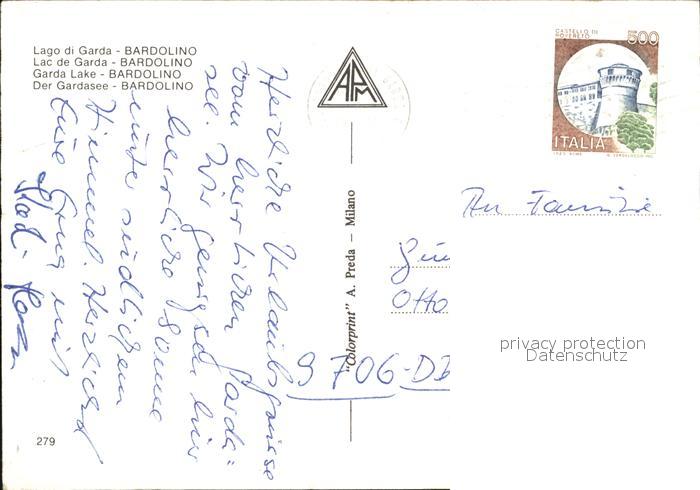 Lago di Garda - BARDOLINO
Lac de Garda - BARDOLINO
Garda Lake - BARDOLINO
Der Gardasee - BARDOLINO
APM
CASTELLO DI
ROVERETO
500
ITALIA
Herzliche Urlaubsgrüsse
vom herrlichen Garda=
see. Wir genießen hier
herrliche Sonne
unter südlichem
Himmel. Herzlichst
Eure
"Colorprint" A. Preda - Milano
An Familie
Otto
9706-
privacy protection
Datenschutz
279